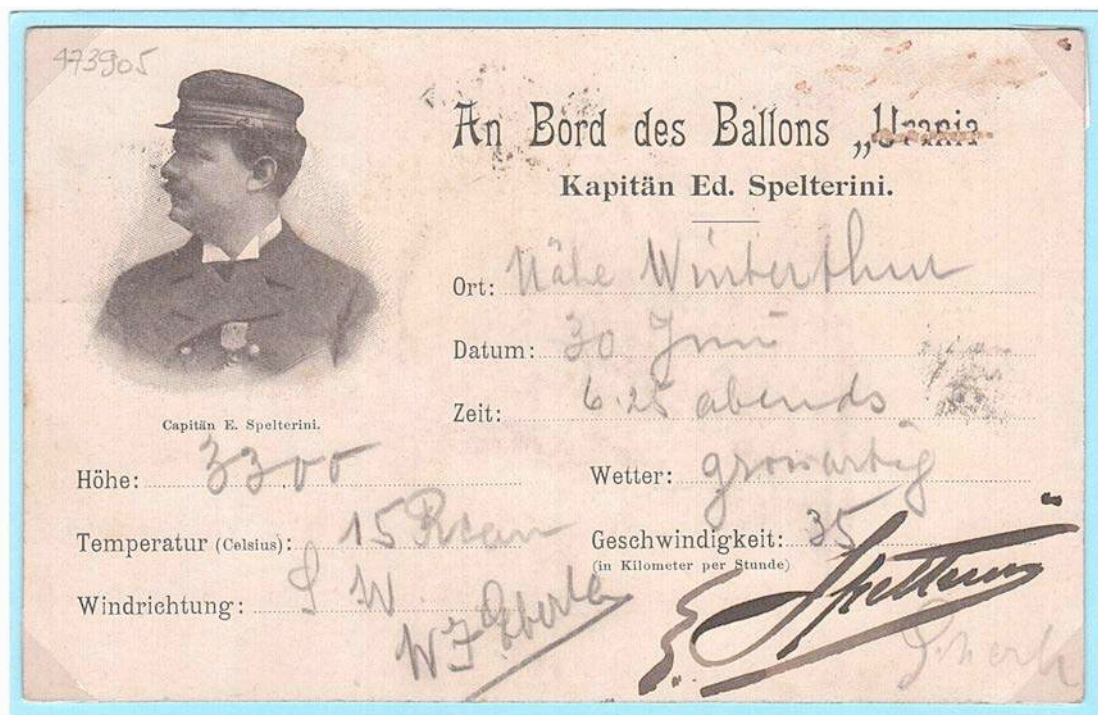 473905
An Bord des Ballons „Urania
Kapitän Ed. Spelterini.
Capitän E. Spelterini.
Ort: Nähe Winterthur
Datum: 30 Juni
Zeit: 6.25 abends
Höhe: 3300
Wetter: grossartig
Temperatur (Celsius): 15 Reaum
Geschwindigkeit: 35
(in Kilometer per Stunde)
Windrichtung: S W.
E. Spelterini